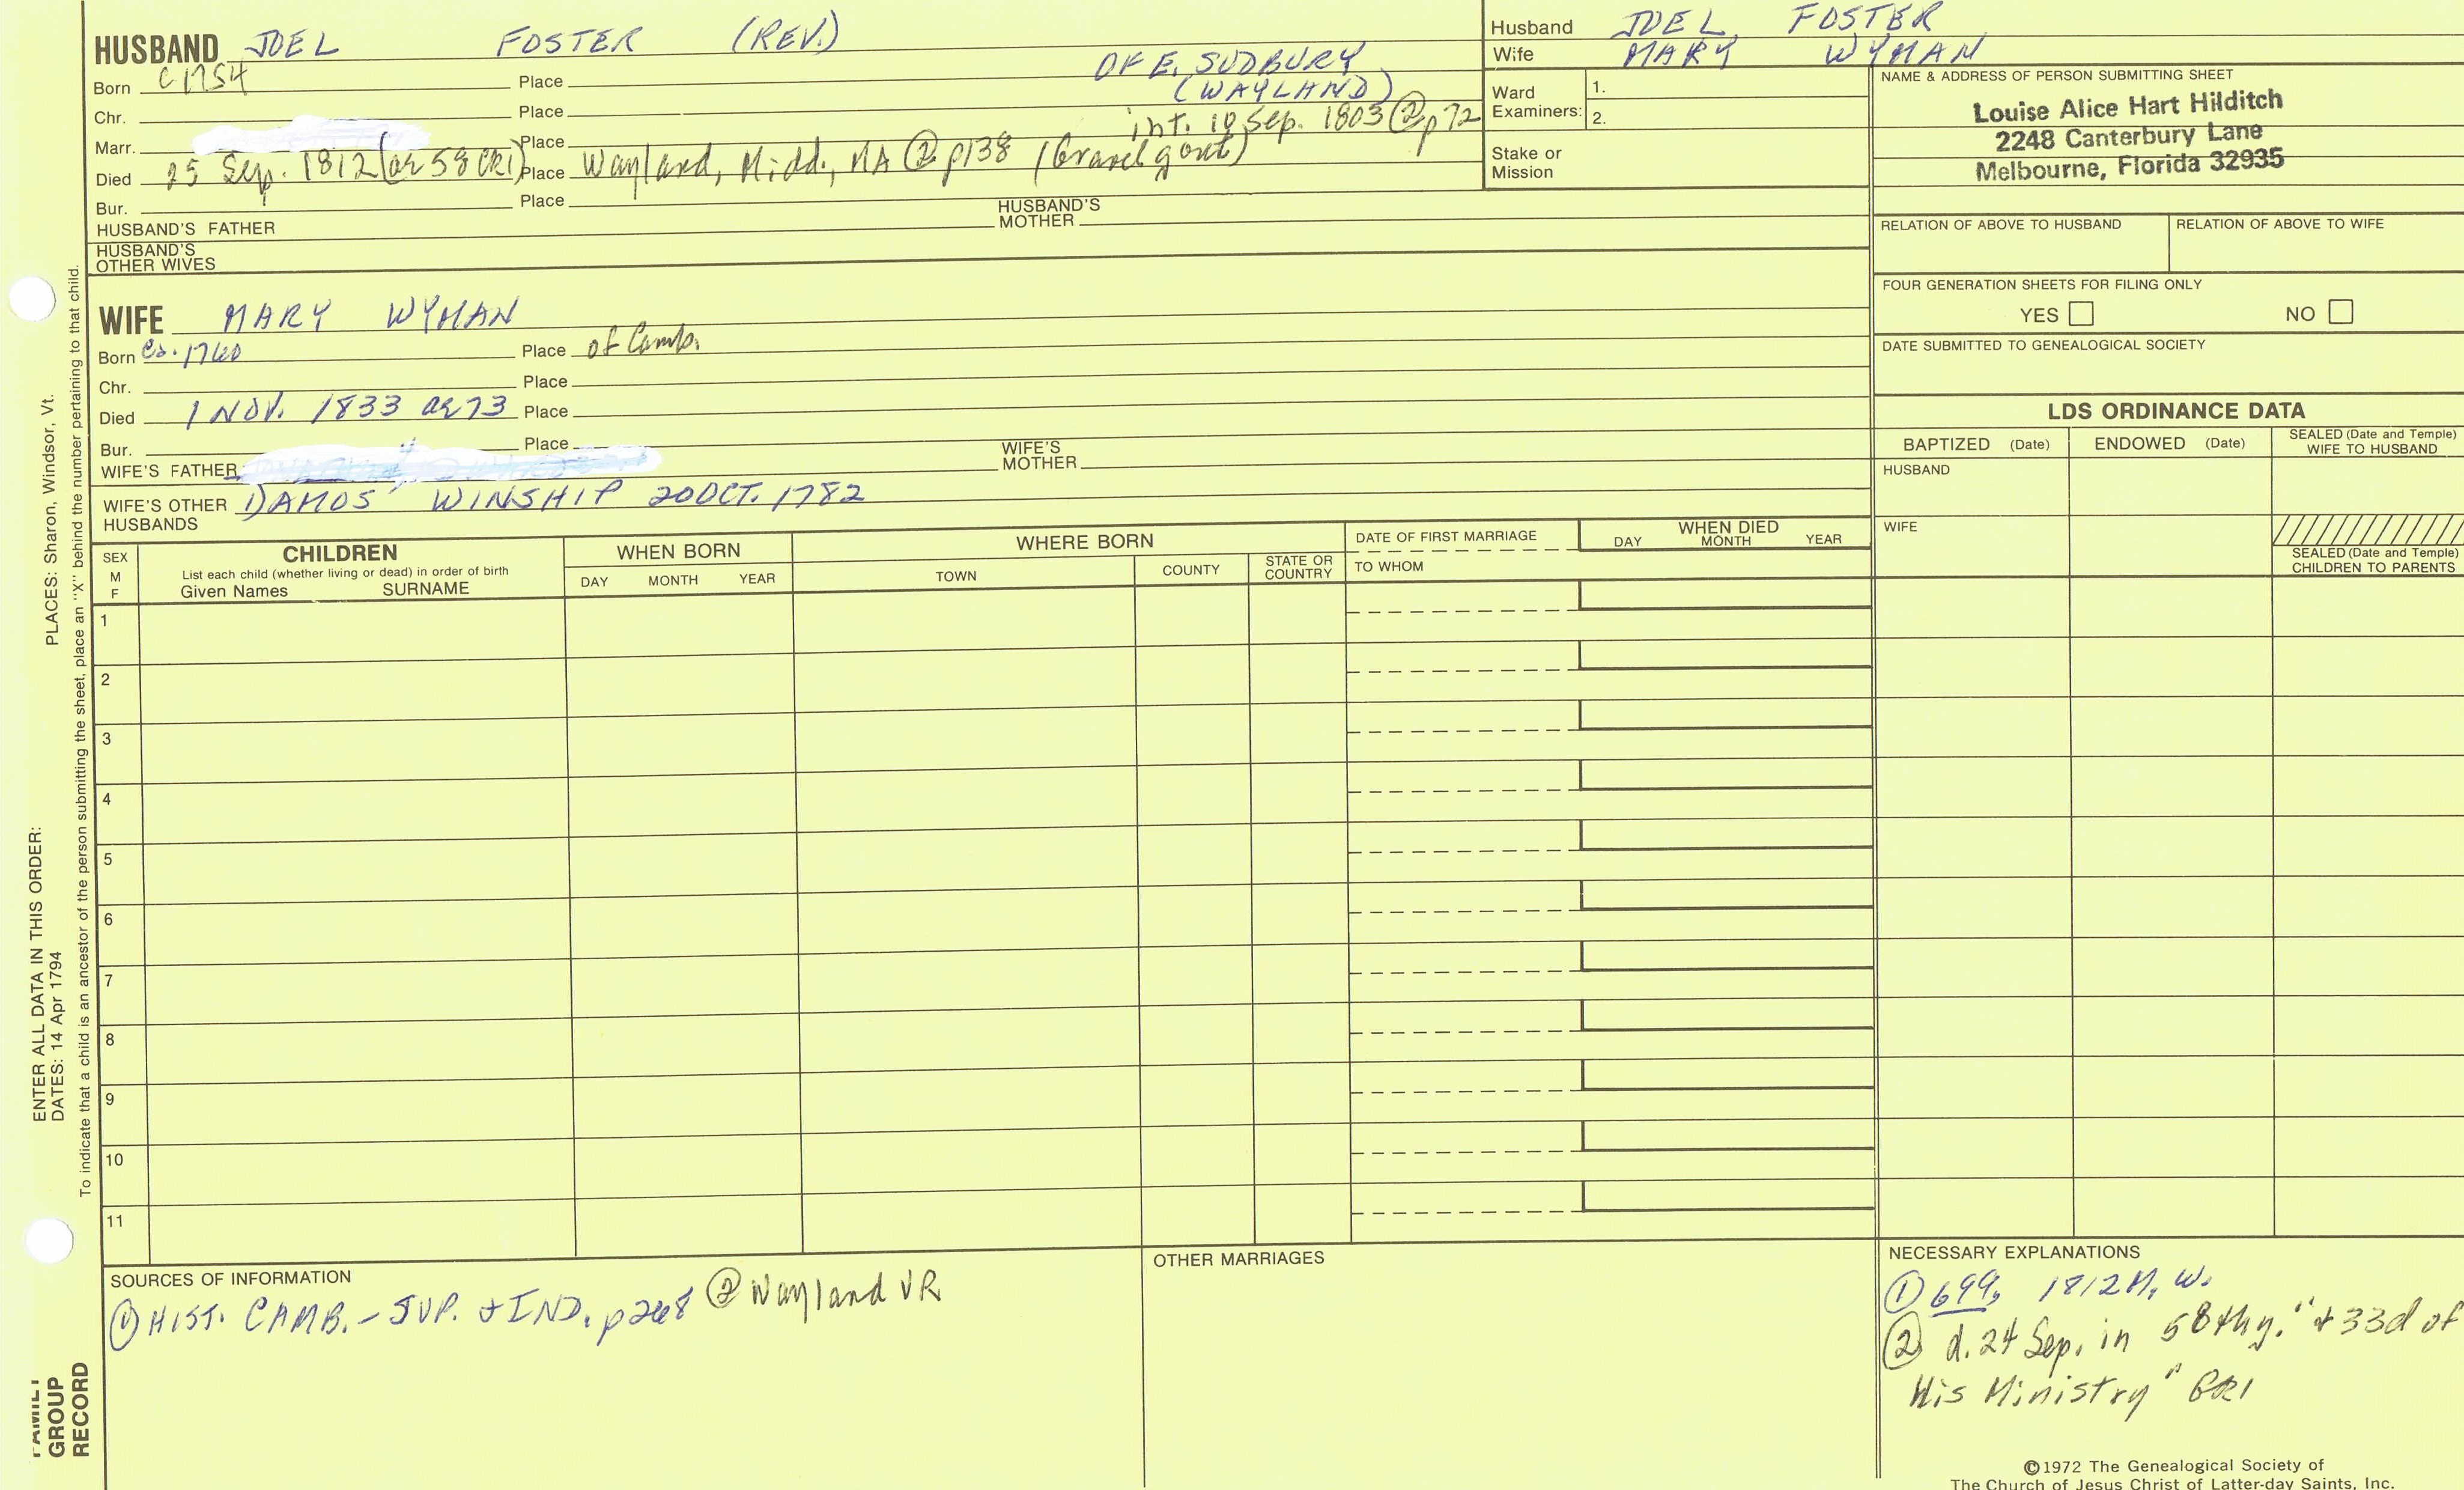 HUSBAND JOEL FOSTER (REV.)
Born c1754 Place OF E. SUDBURY
(WAYLAND)
Chr. Place
Marr. Place int. 10 Sep. 1803 @ p72
Died 25 Sep. 1812 (ae 58 CR1) Place Wayland, Midd., MA @ p138 (Gravel gout)
Bur. Place
HUSBAND'S FATHER HUSBAND'S MOTHER
HUSBAND'S OTHER WIVES
Husband JOEL FOSTER
Wife MARY WYMAN
Ward Examiners: 1.
2.
Stake or Mission
NAME & ADDRESS OF PERSON SUBMITTING SHEET
Louise Alice Hart Hilditch
2248 Canterbury Lane
Melbourne, Florida 32935
RELATION OF ABOVE TO HUSBAND RELATION OF ABOVE TO WIFE
FOUR GENERATION SHEETS FOR FILING ONLY
YES NO
DATE SUBMITTED TO GENEALOGICAL SOCIETY
WIFE MARY WYMAN
Born ca. 1760 Place of Camb.
Chr. Place
Died 1 NOV. 1833 ae 73 Place
Bur. Place
WIFE'S FATHER WIFE'S MOTHER
WIFE'S OTHER HUSBANDS 1) AMOS WINSHIP 20 OCT. 1782
LDS ORDINANCE DATA
BAPTIZED (Date) ENDOWED (Date) SEALED (Date and Temple) WIFE TO HUSBAND
HUSBAND
WIFE
SEALED (Date and Temple) CHILDREN TO PARENTS
SEX M F
CHILDREN
List each child (whether living or dead) in order of birth
Given Names SURNAME
WHEN BORN
DAY MONTH YEAR
WHERE BORN
TOWN COUNTY STATE OR COUNTRY
DATE OF FIRST MARRIAGE
TO WHOM
WHEN DIED
DAY MONTH YEAR
1
2
3
4
5
6
7
8
9
10
11
SOURCES OF INFORMATION
① HIST. CAMB. - SUP. & IND. p268 ② Wayland VR
OTHER MARRIAGES
NECESSARY EXPLANATIONS
① 699, 1812 M. W.
② d. 24 Sep. in 58th y. "& 33d of
His Ministry" CR1
©1972 The Genealogical Society of
The Church of Jesus Christ of Latter-day Saints, Inc.
ENTER ALL DATA IN THIS ORDER:
DATES: 14 Apr 1794 PLACES: Sharon, Windsor, Vt.
To indicate that a child is an ancestor of the person submitting the sheet, place an "X" behind the number pertaining to that child.
FAMILY
GROUP
RECORD